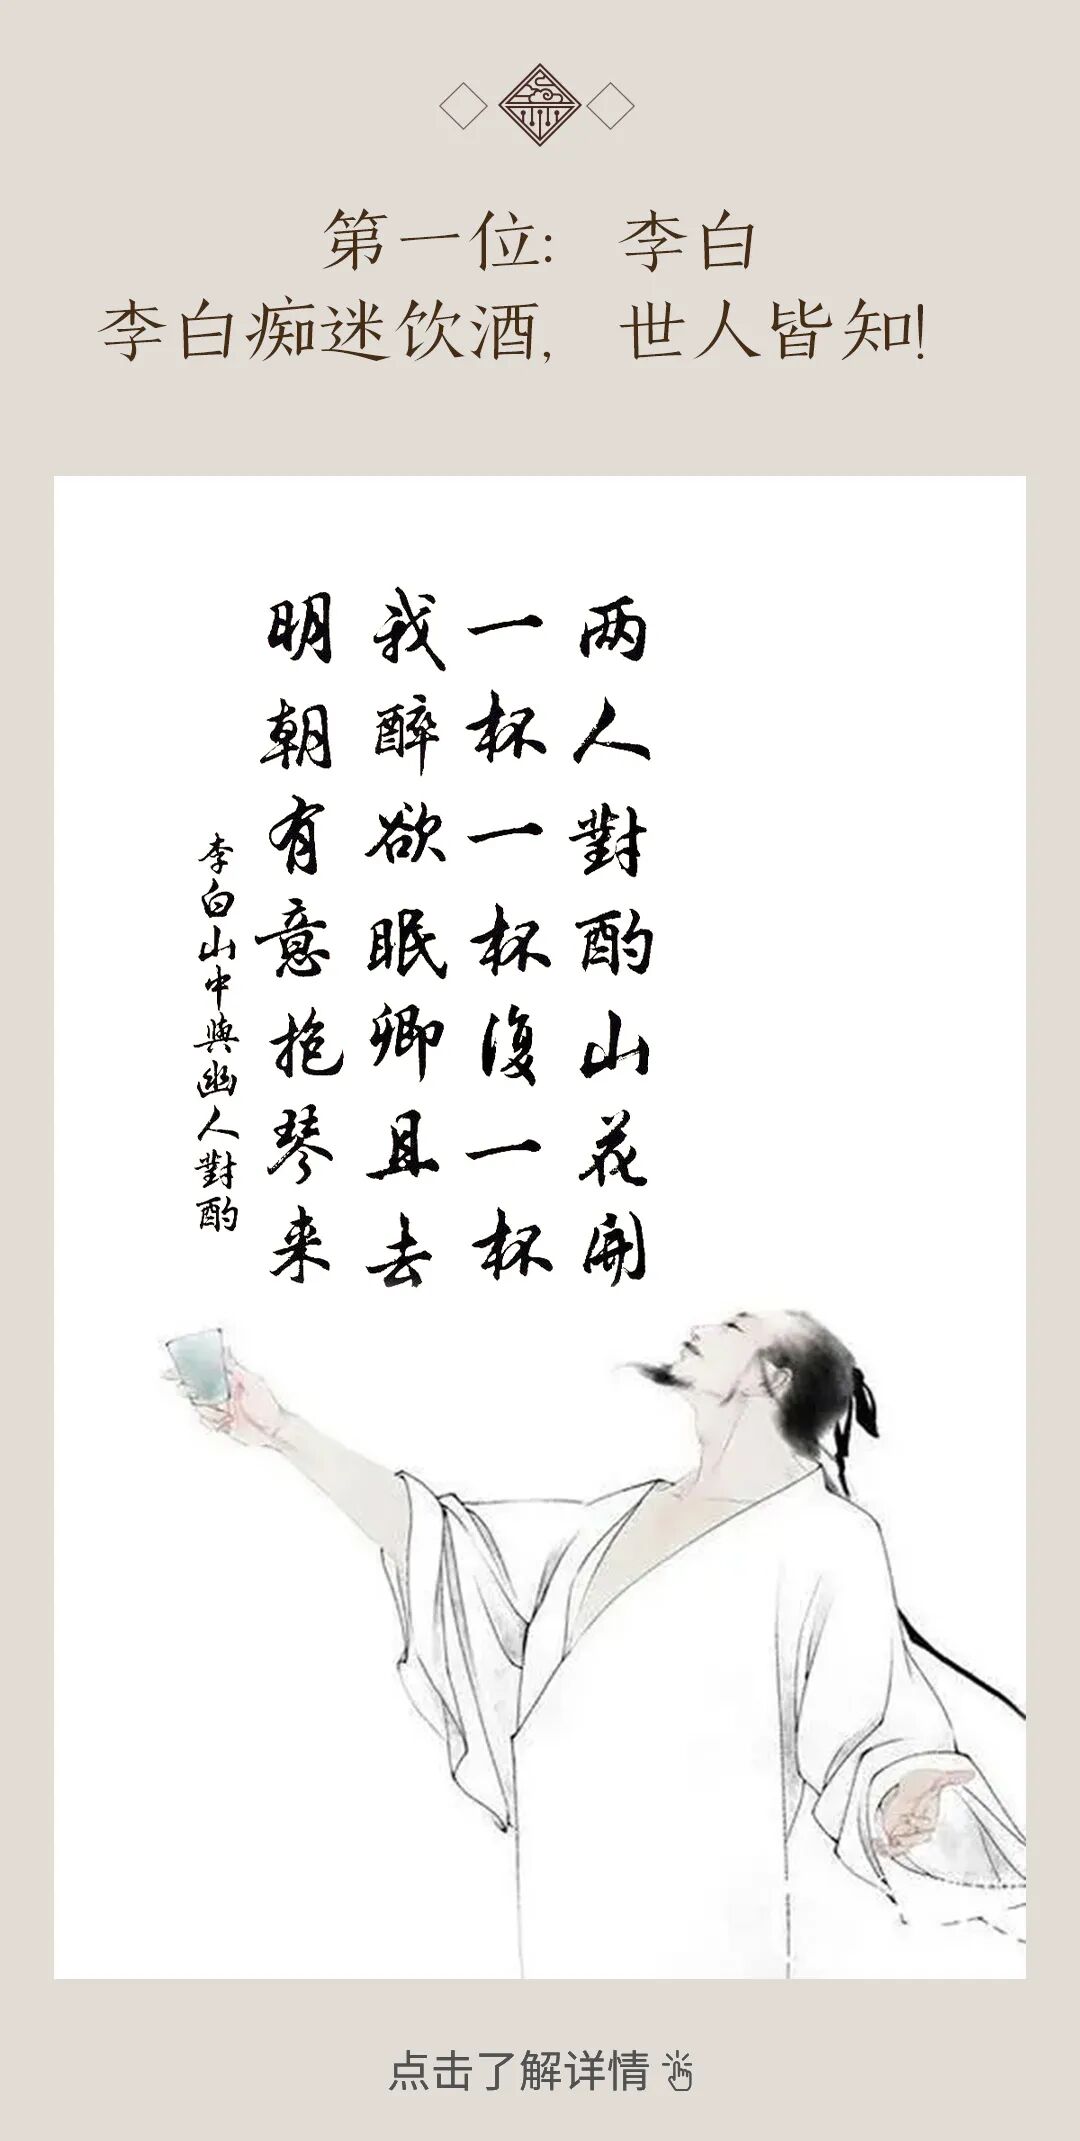 第一位： 李白
李白痴迷饮酒， 世人皆知！
两人對酌山花開
一杯一杯復一杯
我醉欲眠卿且去
明朝有意抱琴来
李白山中與幽人對酌
点击了解详情